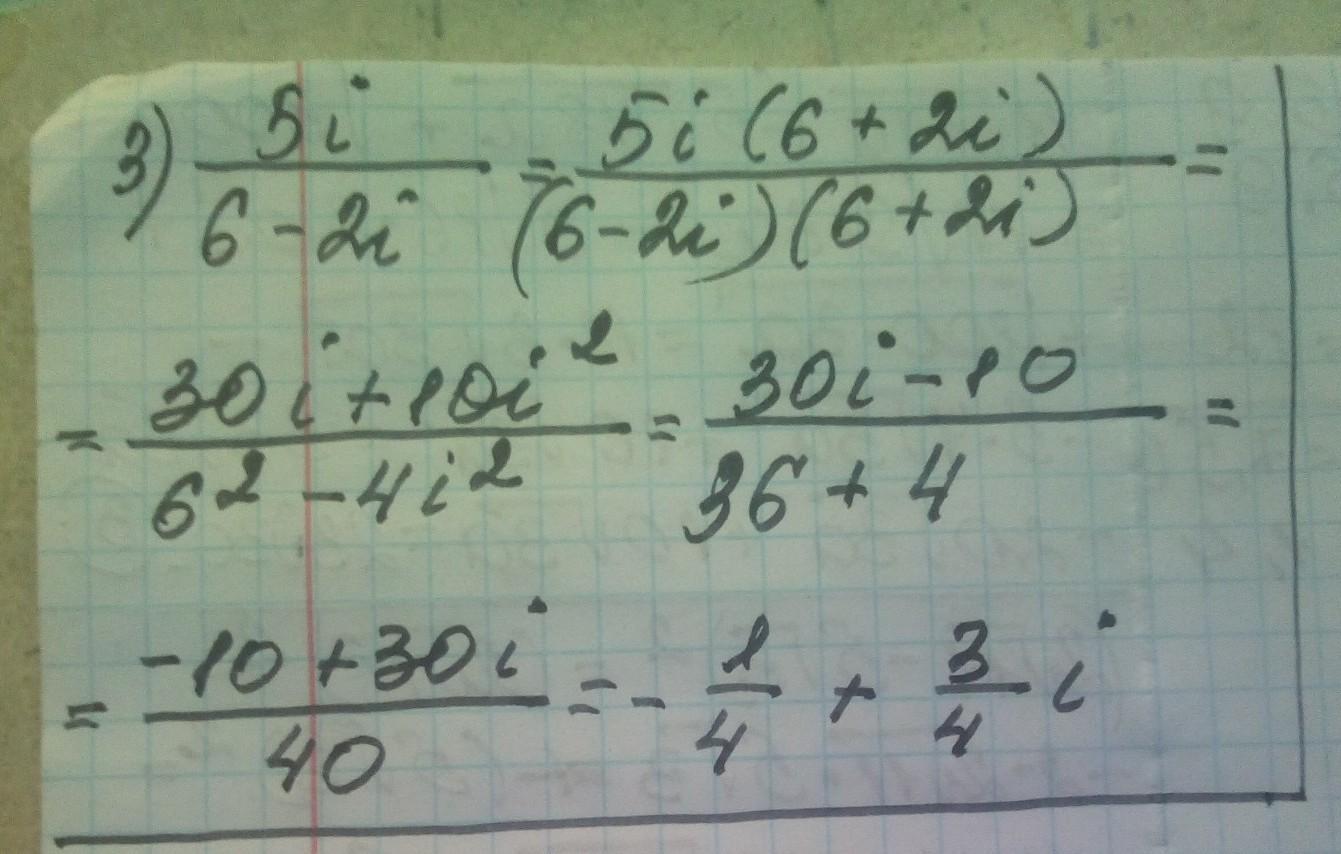 3) 5i / (6 - 2i) = 5i (6 + 2i) / (6 - 2i) (6 + 2i) =
= (30i + 10i²) / (6² - 4i²) = (30i - 10) / (36 + 4) =
= (-10 + 30i) / 40 = - 1/4 + 3/4 i